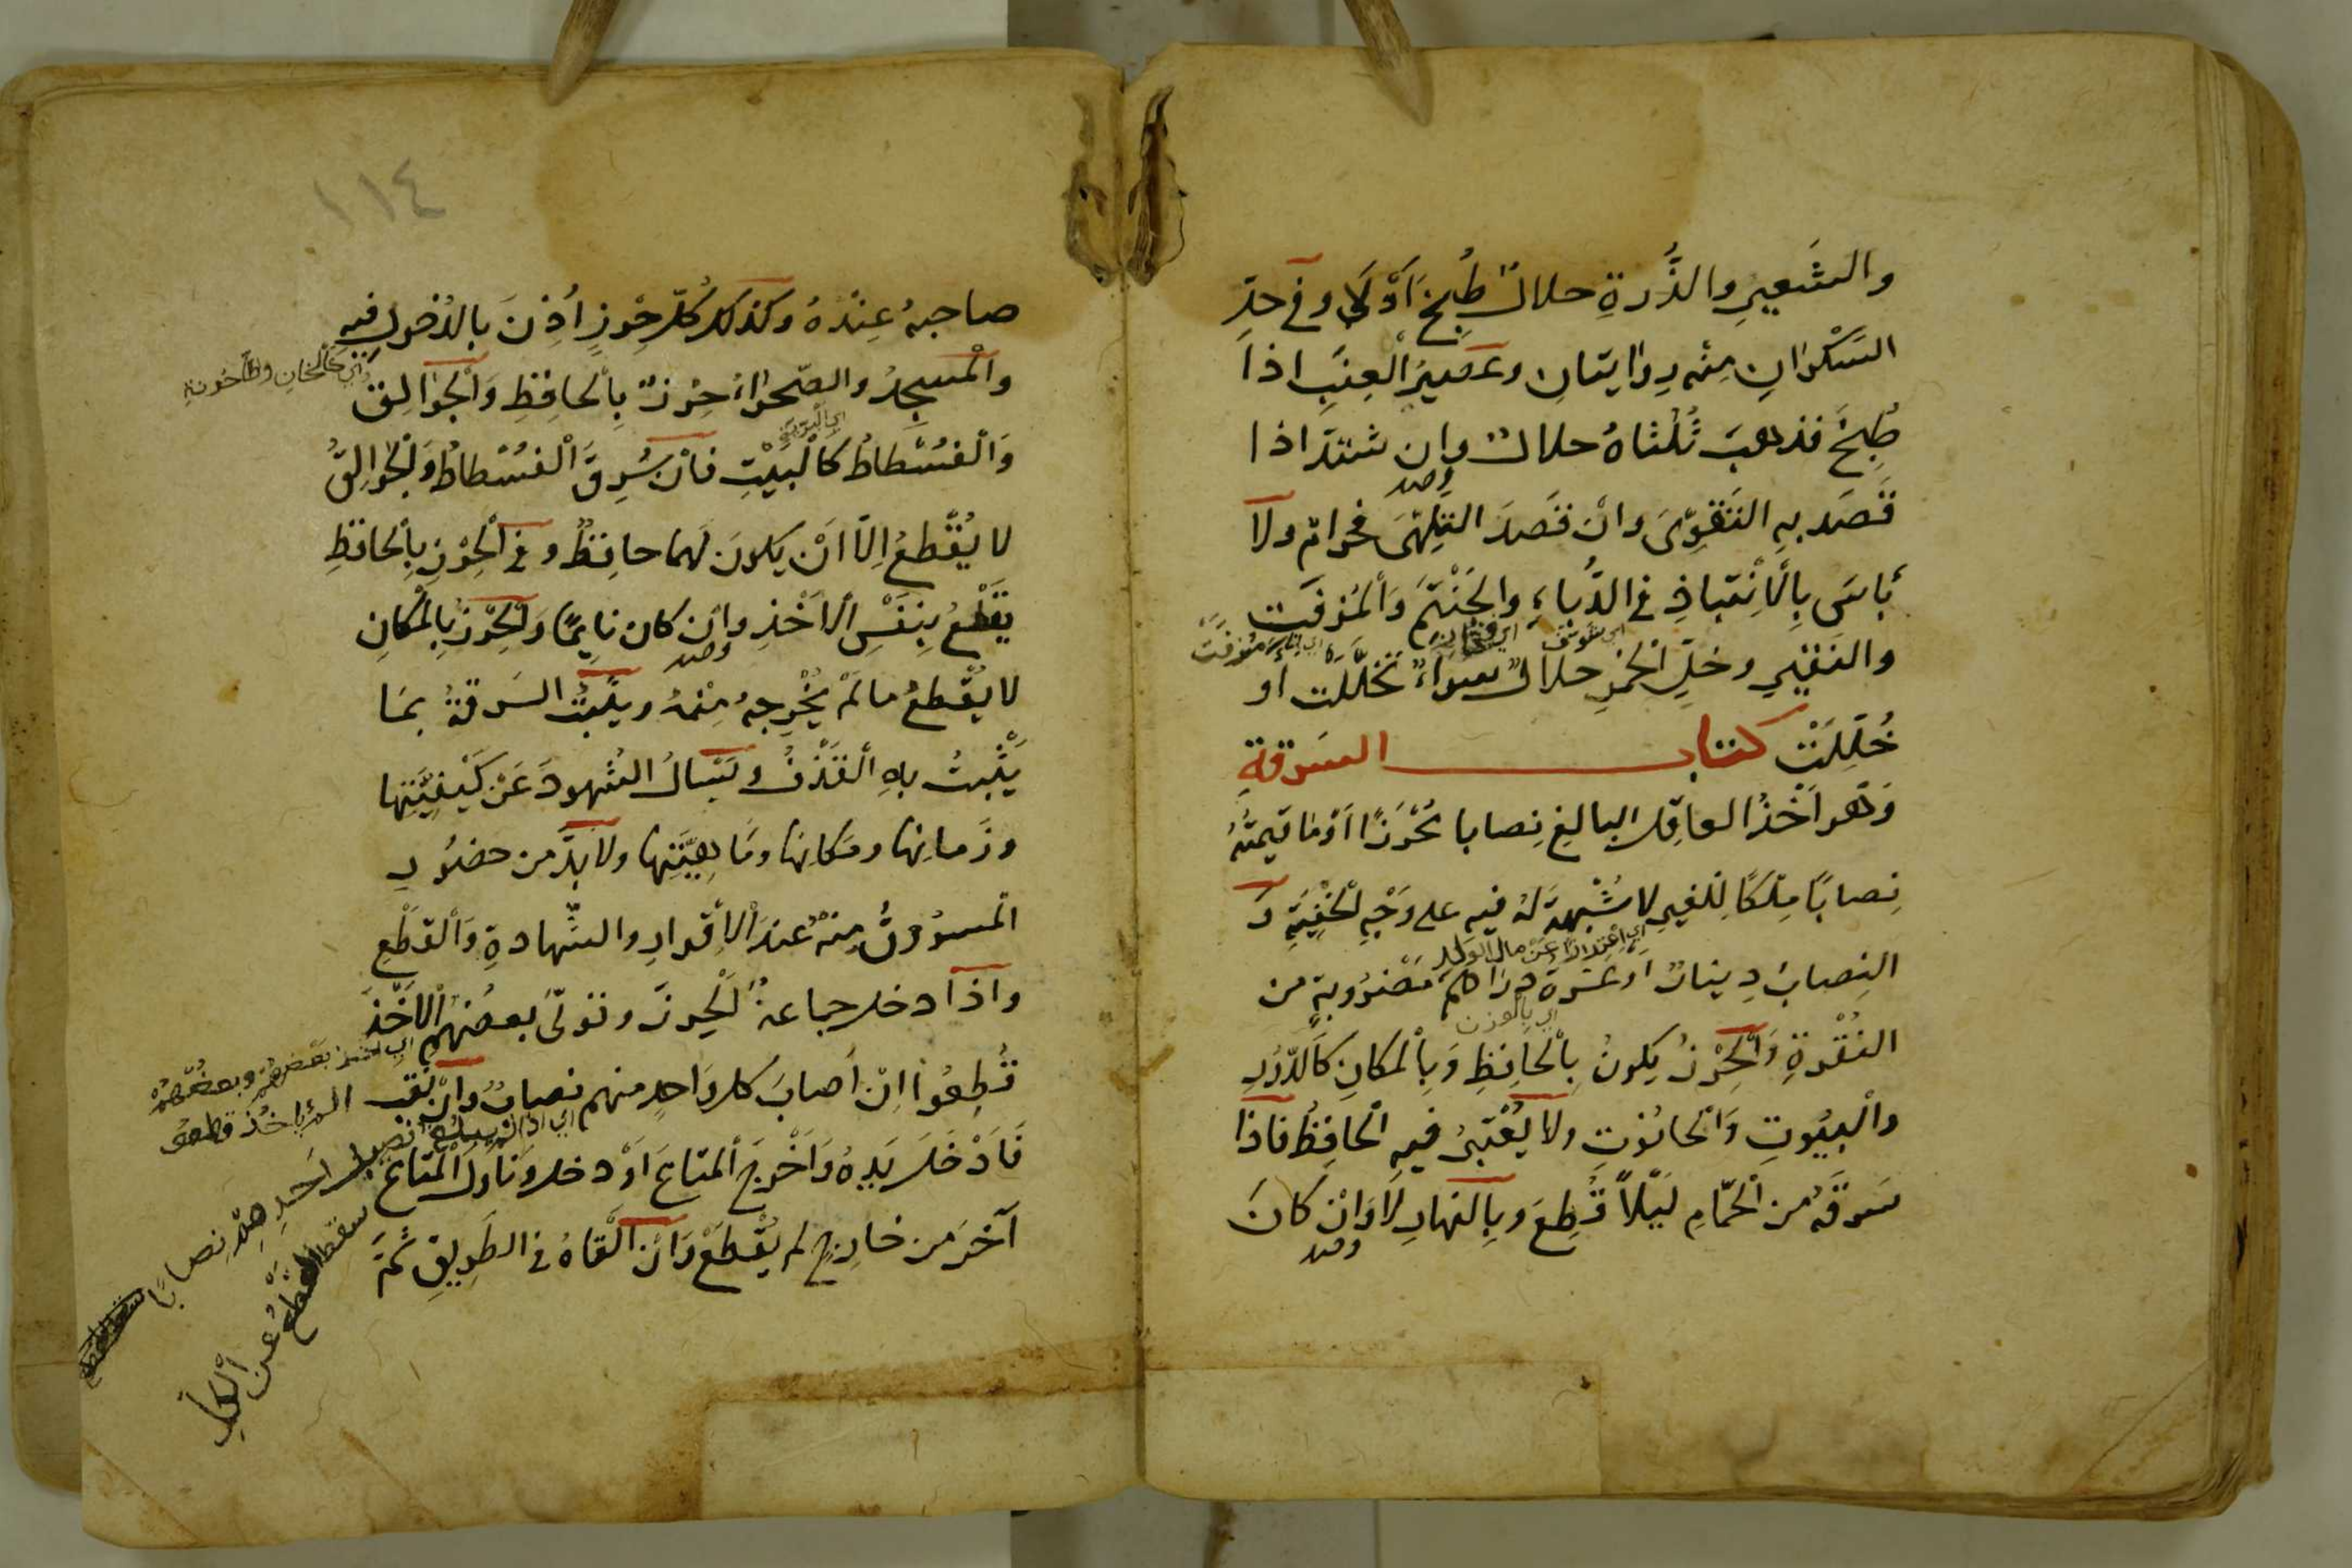 والشعيرِ والذُّرةِ حلالٌ طُبِخَ اَوْ لَا وفى حدِّ
السَكْرانِ مِنْه رِوَايتانِ وعَصيرُ الْعِنَبِ اذا
طُبِخَ فذهبَ ثُلُثاهُ حلالٌ وان شتدّ اذا
قَصَد بهِ التَقوِّىَ وانْ قَصدَ التلهّىَ فحرامٌ ولا
بأسَ بِالْاِنْتباذِ فى الدُّباءِ والحَنْتَمِ وَالْمُزفَّت
اى مزفت
والنَقيرِ وخلِّ الخَمرِ حلالٌ سواءٌ تخَلَّلَت أو
خُلِّلَتْ كتاب السَرقةِ
وَهو اَخْذُ العاقِل البالغِ نِصابا مُحْرَزًا اَوْ ما قيمتُهُ
نِصابًا مِلكًا لِلغيرِ لا شُبْهةَ لهُ فيهِ على وَجْهِ الْخُفْيَةِ وَ
اى اِحْترازًا عَنْ مال الولد
النِصابُ دِينارٌ اوعَشرة دراهمَ مَضْروبةٍ من
اى بالوزن
النُقْرةِ وَالْحِرْزُ يكونُ بِالْحافِظِ وَبِالْمكانِ كَالدّورِ
والْبيُوتِ وَالْحانُوْتِ ولا يُعْتبرُ فيهِ الْحافِظُ فاذا
سَرقَهُ من الْحمّامِ لَيْلًا قُطِعَ وبِالنهارِ لَا وَانْ كانَ
١١٤
صاحبهُ عِنْدَهُ وكذلك كُلّ حِرْزٍ اُذِنَ بالدُخول فيهِ
اى كالخانِ وطاحُونةِ
والْمسجِدُ والصّحراءُ حِرْزٌ بِالْحافِظِ وَالْجُوالِق
وَالْفسُطاطُ كَالْبيْتِ فانْ سُرِقَ الْفسُطاطُ والْجُوالِقُ
لا يُقْطعُ اِلّا اَنْ يكونَ لَهما حافِظٌ وفى الْحِرْزِ بِالْحافظِ
يُقْطعُ بِنفْسِ الْاَخْذِ وان كان نايِمًا وَالْحِرْزُ بِالْمكانِ
لا يُقْطعُ ما لَمْ يُخْرِجهُ مِنْهُ ويثْبُتُ السَرقةُ بمَا
يَثْبتُ بِهِ الْقَذْفُ ويَسْألُ الشُهودَ عَنْ كَيْفِيَّتِها
وزَمانِها ومكانِها ومَا هِيَّتِها ولا بدَّ من حضوُرِ
الْمسرُوقِ مِنْهُ عِنْدَ الْاِقْرارِ والشّهادةِ وَالْقَطْعِ
واذا دخل جماعةٌ الْحِرزَ وتولّى بعضُهُم الْاَخْذَ
اى اخذ بَعْضِهُمْ وبعضُهُمْ
قُطِعُوا اِنْ أصابَ كل واحِدٍ منهم نصابٌ وان نقب
لم يأخُذ قطعوا
فَاَدْخَلَ يَدهُ وَاَخْرجَ الْمتاعَ اَوْ دخل وناولَ الْمتاعَ
آخَرَ من خارِجٍ لم يُقْطعْ وَاِنْ اَلْقاهُ فى الطَريقِ ثمّ
اى اذا لم يبلغ نصيب احَدِ هِمْ نصابًا
سقط القطعُ عن الكلِّ